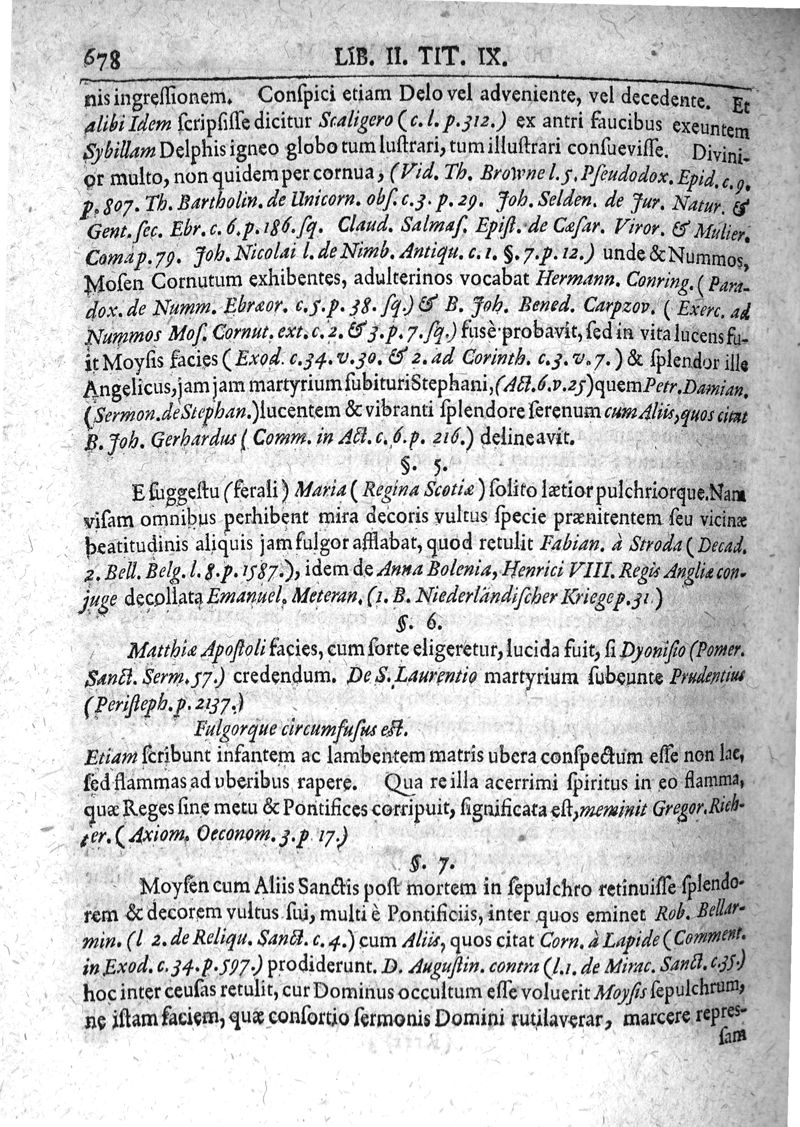 678 LIB. II. TIT. IX.
nis ingreſſionem. Conſpici etiam Delo vel adveniente, vel decedente. Et
alibi Idem ſcripſiſſe dicitur Scaligero (c. l. p. 312.) ex antri faucibus exeuntem
Sybillam Delphis igneo globo tum luſtrari, tum illuſtrari conſueviſſe. Divini-
or multo, non quidem per cornua, (Vid. Th. Browne l. 5. Pſeudodox. Epid. c. 9.
p. 807. Th. Bartholin. de Unicorn. obſ. c. 3. p. 29. Joh. Selden. de Jur. Natur. &
Gent. ſec. Ebr. c. 6. p. 186. ſq. Claud. Salmaſ. Epiſt. de Cæſar. Viror. & Mulier.
Coma p. 79. Joh. Nicolai l. de Nimb. Antiqu. c. 1. §. 7. p. 12.) unde & Nummos,
Moſen Cornutum exhibentes, adulterinos vocabat Hermann. Conring. (Para-
dox. de Numm. Ebræor. c. 5. p. 38. ſq.) & B. Joh. Bened. Carpzov. (Exerc. ad
Nummos Moſ. Cornut. ext. c. 2. & 3. p. 7. ſq.) fusè probavit, ſed in vita lucens fu-
it Moyſis facies (Exod. c. 34. v. 30. & 2. ad Corinth. c. 3. v. 7.) & ſplendor ille
Angelicus, jam jam martyrium ſubituri Stephani, (Act. 6. v. 25) quem Petr. Damian.
(Sermon. de Stephan.) lucentem & vibranti ſplendore ſerenum cum Aliis, quos citat
B. Joh. Gerhardus (Comm. in Act. c. 6. p. 216.) delineavit.
§. 5.
E ſuggeſtu (ferali) Maria (Regina Scotiæ) ſolito lætior pulchriorque. Nam
viſam omnibus perhibent mira decoris vultus ſpecie prænitentem ſeu vicinæ
beatitudinis aliquis jam fulgor afflabat, quod retulit Fabian. à Stroda (Decad.
2. Bell. Belg. l. 8. p. 1587.), idem de Anna Bolenia, Henrici VIII. Regis Angliæ con-
juge decollata Emanuel. Meteran. (1. B. Niederländiſcher Kriege p. 31)
§. 6.
Matthiæ Apoſtoli facies, cum ſorte eligeretur, lucida fuit, ſi Dyoniſio (Pomer.
Sanct. Serm. 57.) credendum. De S. Laurentio martyrium ſubeunte Prudentius
(Periſteph. p. 2137.)
Fulgorque circumfuſus eſt.
Etiam ſcribunt infantem ac lambentem matris ubera conſpectum eſſe non lac,
ſed flammas ad uberibus rapere. Qua re illa acerrimi ſpiritus in eo flamma,
quæ Reges ſine metu & Pontifices corripuit, ſignificata eſt, meminit Gregor. Rich-
ter. (Axiom. Oeconom. 3. p 17.)
§. 7.
Moyſen cum Aliis Sanctis poſt mortem in ſepulchro retinuiſſe ſplendo-
rem & decorem vultus ſui, multi è Pontificiis, inter quos eminet Rob. Bellar-
min. (l 2. de Reliqu. Sanct. c. 4.) cum Aliis, quos citat Corn. à Lapide (Comment.
in Exod. c. 34. p. 597.) prodiderunt. D. Auguſtin. contra (l. 1. de Mirac. Sanct. c. 35.)
hoc inter ceuſas retulit, cur Dominus occultum eſſe voluerit Moyſis ſepulchrum,
ne iſtam faciem, quæ conſortio ſermonis Domini rutilaverar, marcere repres-
ſam